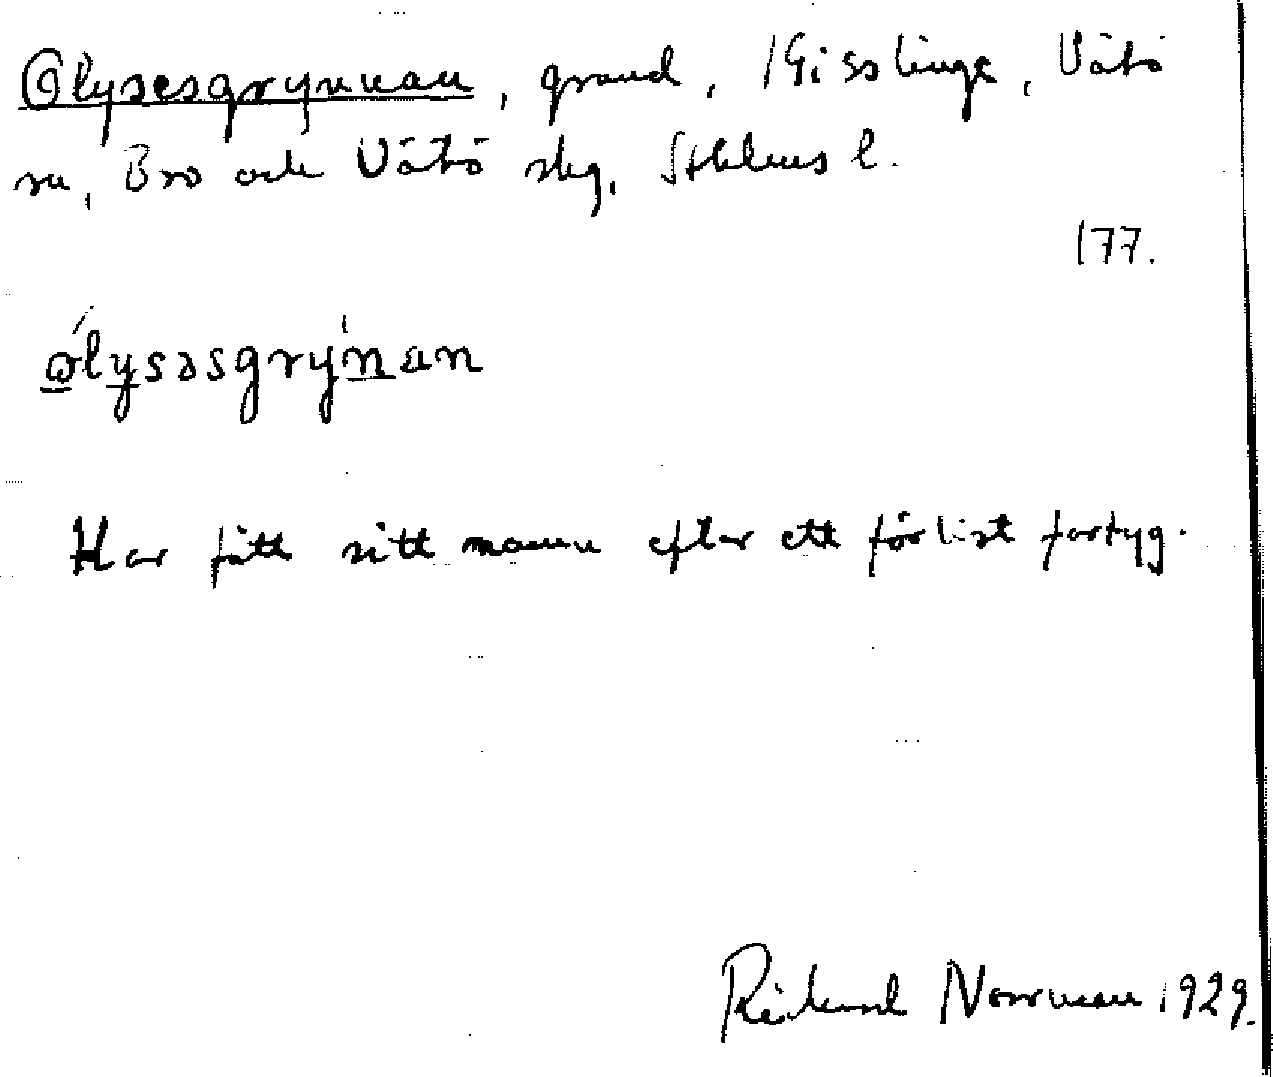 Olysesgrynnan, grund, /Gisslinge, Vätö
sn, Bro och Vätö skg, Sthlms l.
177.
ǫ́lysəsgrýnan
Har fått sitt namn efter ett förlist fartyg.
Rikard Norrman 1929.